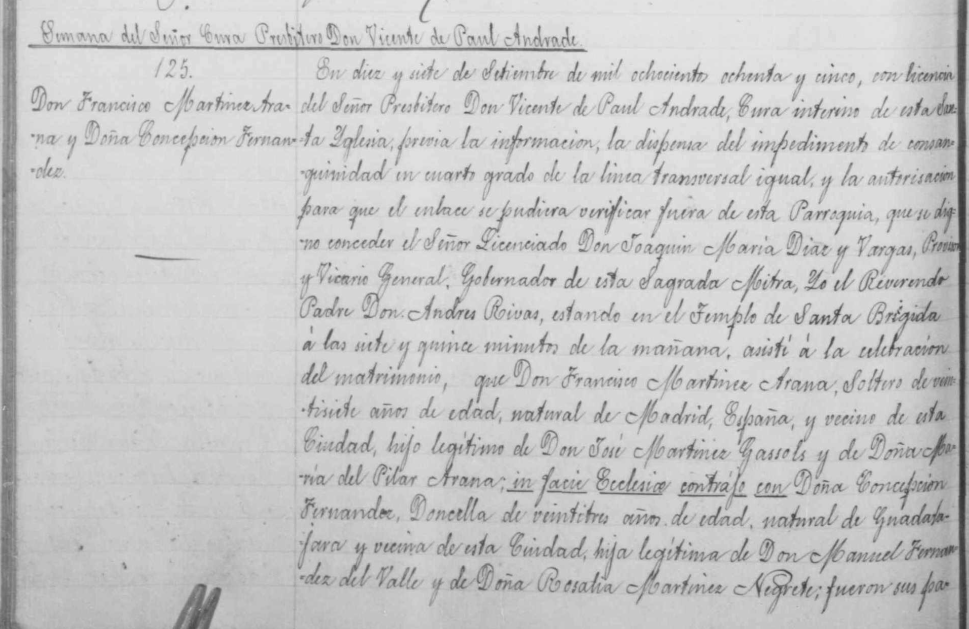 Semana del Señor Cura Presbitero Don Vicente de Paul Andrade.
125.
Don Francisco Martinez Ara-
na y Doña Concepcion Fernan-
-dez.
En diez y siete de Setiembre de mil ochocientos ochenta y cinco, con licencia
del Señor Presbitero Don Vicente de Paul Andrade, Cura interino de esta San-
-ta Yglesia, previa la informacion, la dispensa del impedimento de consan-
guinidad en cuarto grado de la linea transversal igual, y la autorisacion
para que el enlace se pudiera verificar fuera de esta Parroquia, que se dig-
-no conceder el Señor Licenciado Don Joaquin María Diaz y Vargas, Provisor
y Vicario General, Gobernador de esta Sagrada Mitra, Yo el Reverendo
Padre Don Andres Rivas, estando en el Templo de Santa Brígida
á las siete y quince minutos de la mañana, asistí á la celebracion
del matrimonio, que Don Francisco Martinez Arana, Soltero de vein-
-tisiete años de edad, natural de Madrid, España, y vecino de esta
Ciudad, hijo legítimo de Don José Martinez Gassols y de Doña Ma-
ría del Pilar Arana; in facie Ecclesiæ contrajo con Doña Concepcion
Fernandez, Doncella de veintitres años de edad, natural de Guadala-
-jara y vecina de esta Ciudad, hija legítima de Don Manuel Fernan-
-dez del Valle y de Doña Rosalia Martinez Negrete; fueron sus pa-